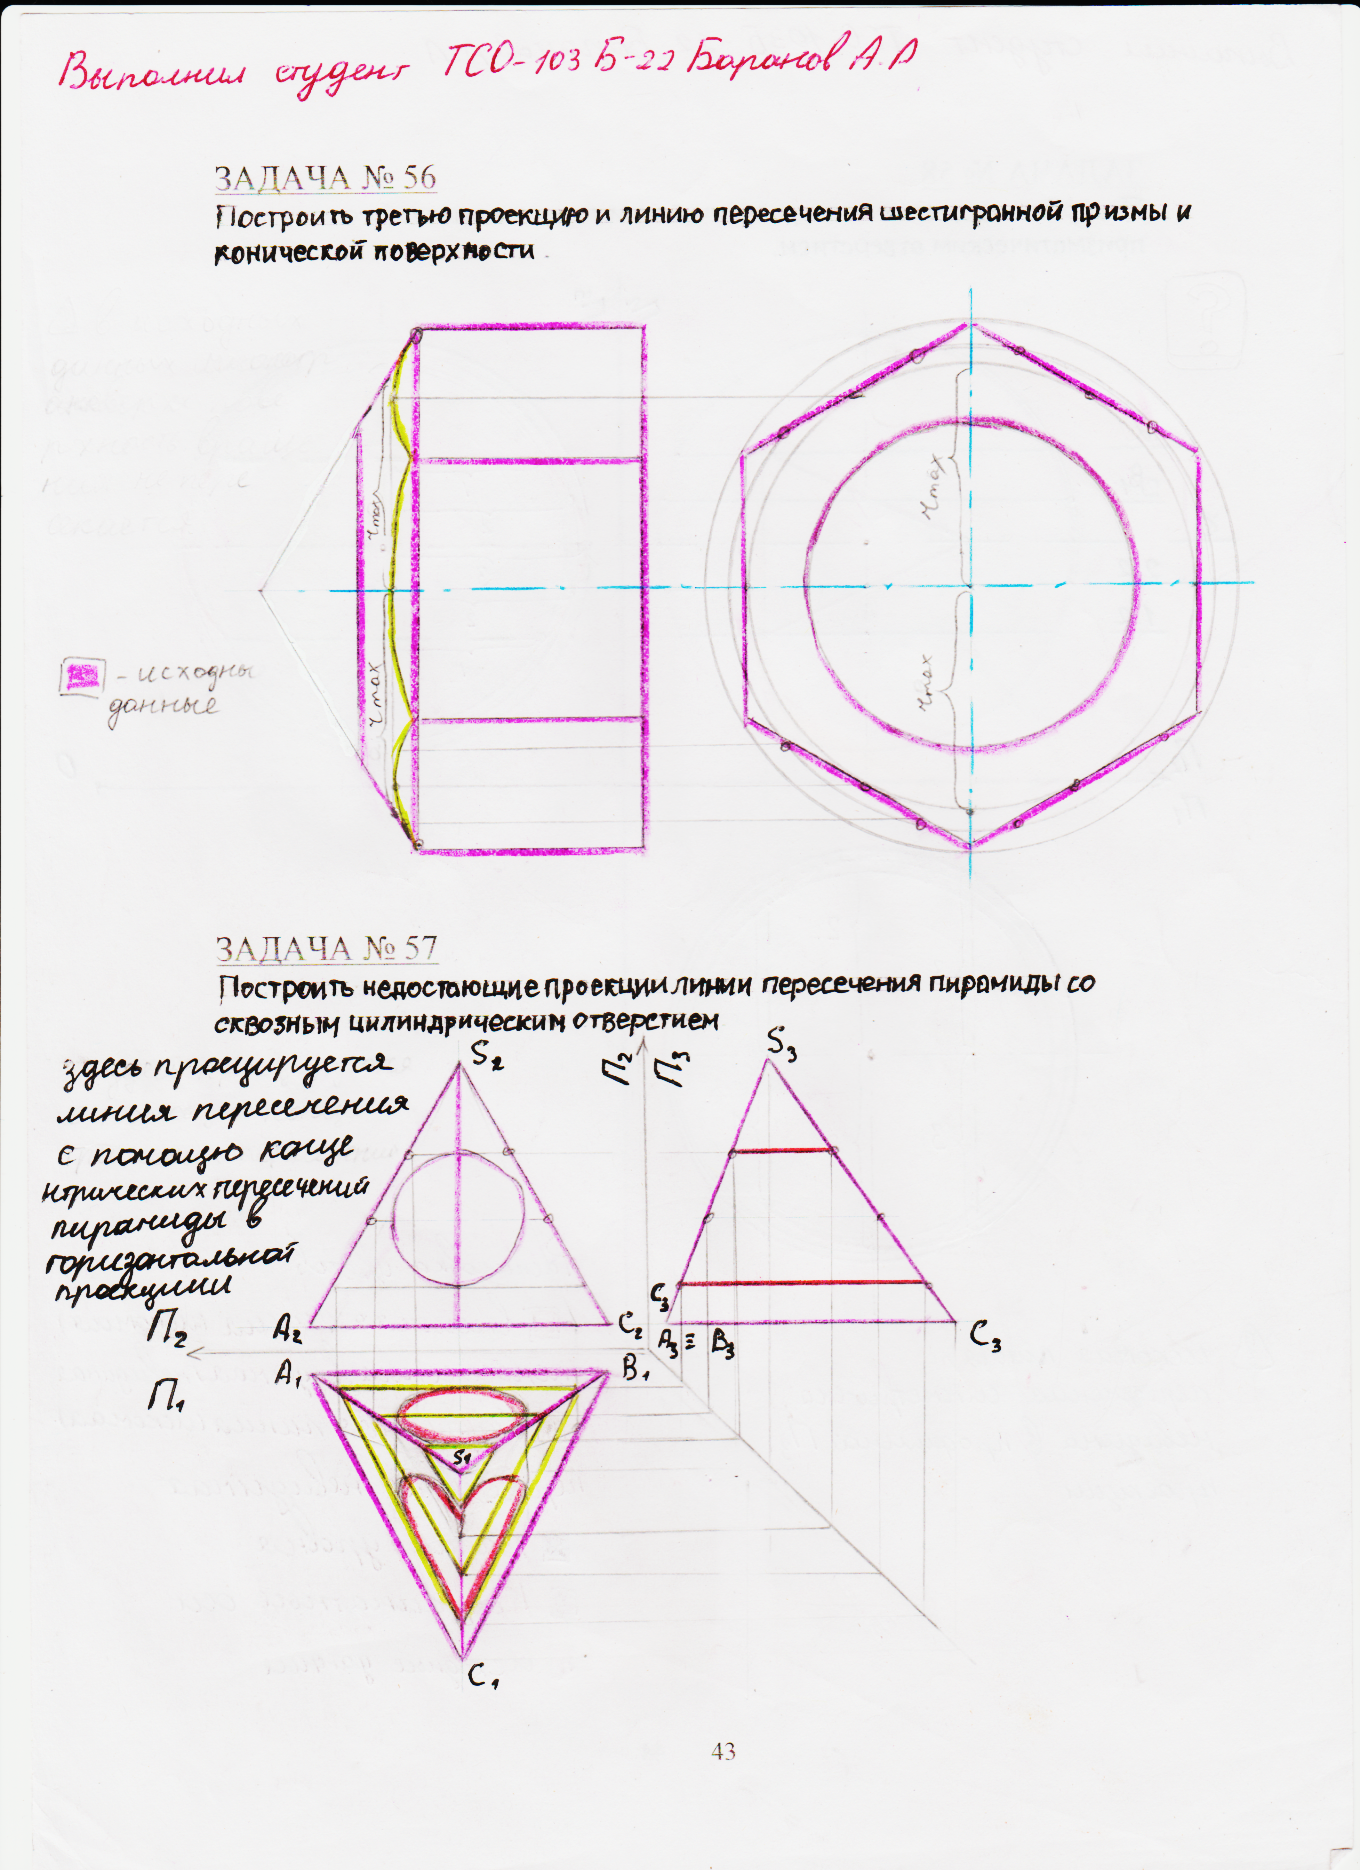 Выполнил студент ТСО-103 Б-22 Баранов А.А
ЗАДАЧА № 56
Построить третью проекцию и линию пересечения шестигранной призмы и
конической поверхности.
rmax
rmax
rmax
rmax
- исходны
данные
ЗАДАЧА № 57
Построить недостающие проекции линии пересечения пирамиды со
сквозным цилиндрическим отверстием
здесь проецируется
линия пересечения
с помощью конце
нтрических пересечений
пирамиды в
горизонтальной
проекции
S2
П2
П3
S3
C3
П2
A2
C2
A3 ≡ B3
C3
П1
A1
B1
S1
C1
43